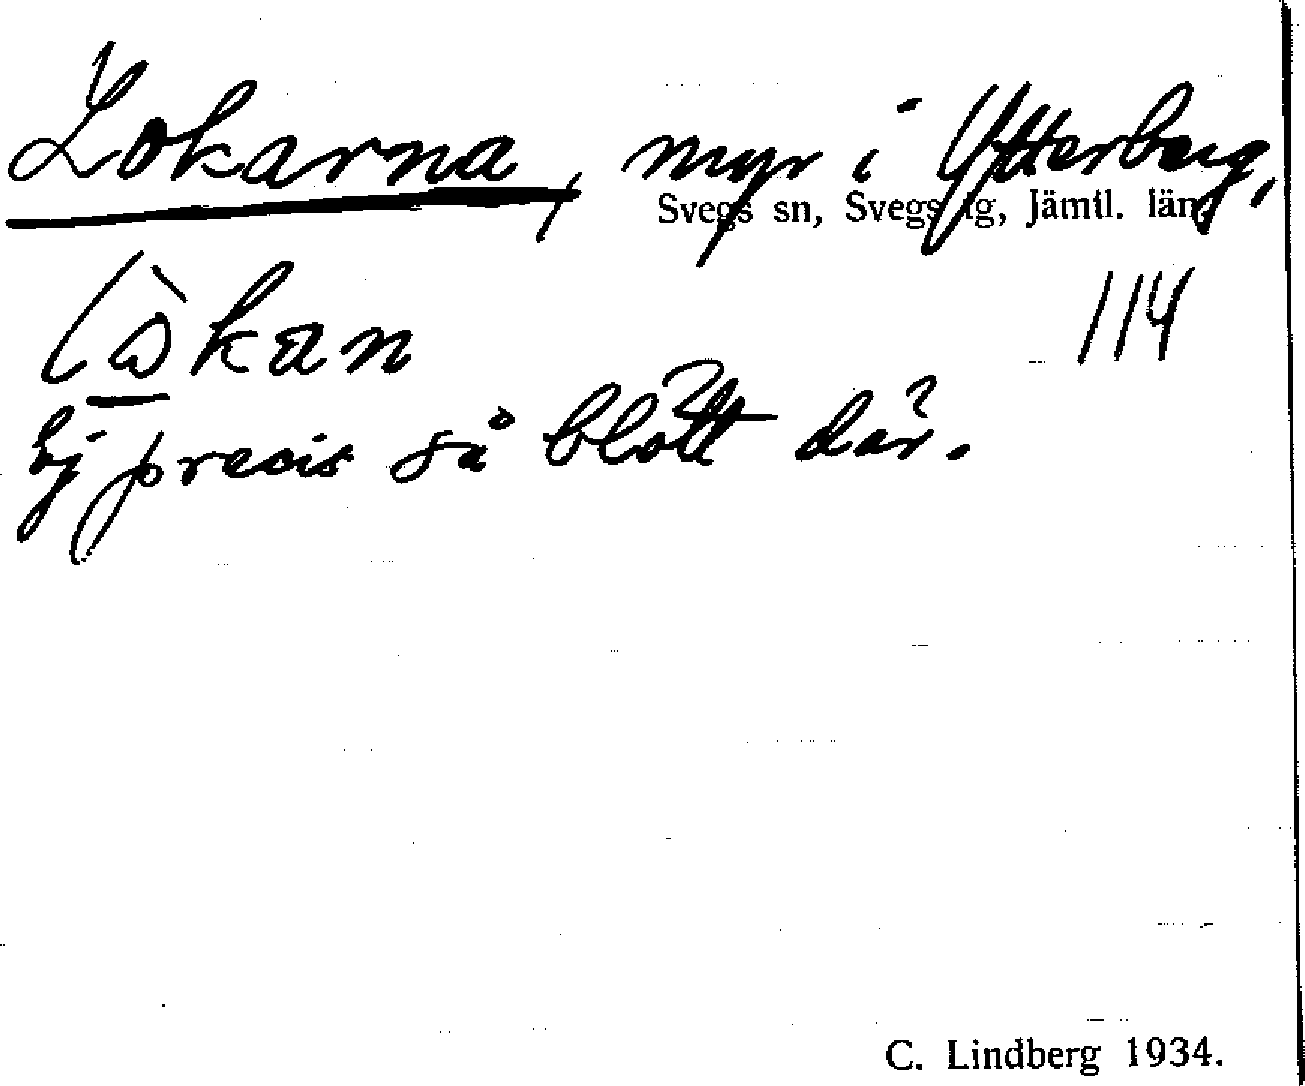 Lokarna, myr i Ytterberg,
Svegs sn, Svegs tg, Jämtl. län.
lòkan
114
Ej precis så blött där.
C. Lindberg 1934.